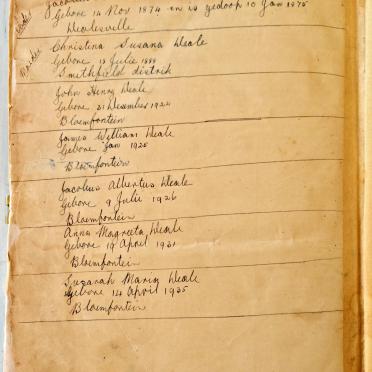 Gebore 14 Nov 1874 en is gedoop 10 Jan 1875
Wealesville
Moeder
Christina Susana Weale
Gebore 18 Julie
Smithfield distrik
John Henry Weale
Gebore 31 Desember 1922
Bloemfontein
James William Weale
Gebore Jan 1925
Bloemfontein
Jacobus Albertus Weale
Gebore 9 Julie 1926
Bloemfontein
Anna Magreeta Weale
Gebore 19 April 1931
Bloemfontein
Susarah Maria Weale
Gebore 14 April 1935
Bloemfontein